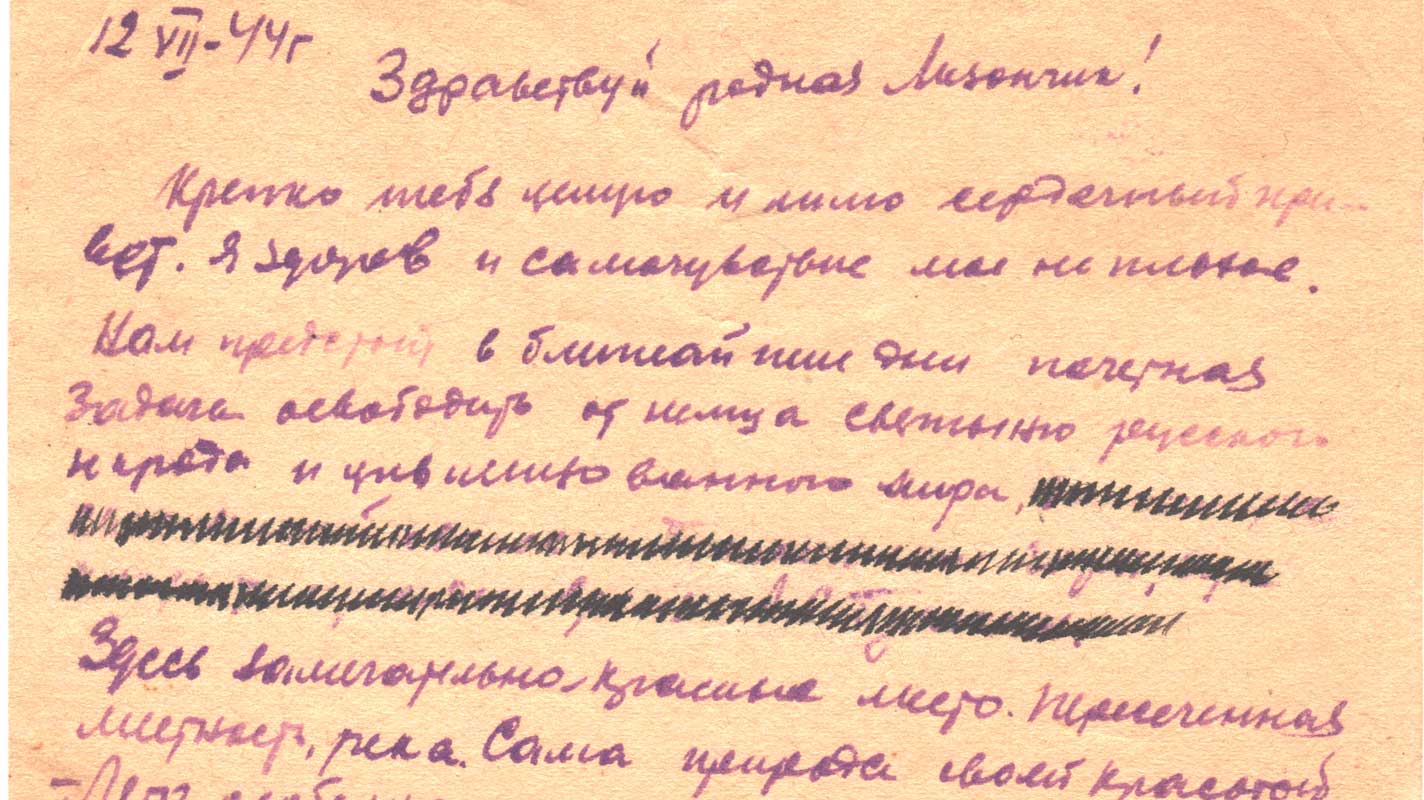 12 VII-44г
Здравствуй родная Лизончик!
Крепко тебя целую и шлю сердечный при-
вет. Я здоров и самочувствие мое не плохое.
Нам предстоит в ближайшие дни почетная
задача освободить от немца святыню русского
народа и цивилизованного мира,
Здесь замечательно-красивые место. Пересеченная
местность, река. Сама природа своей красотой